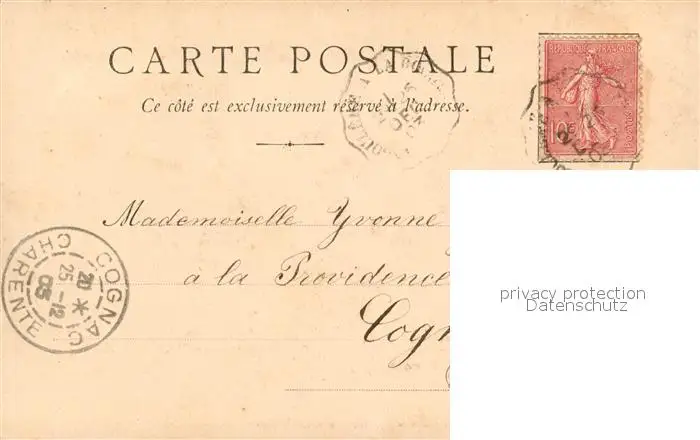 CARTE POSTALE
Ce côté est exclusivement réservé à l'adresse.
RÉPUBLIQUE FRANÇAISE
POSTES
10c
Mademoiselle Yvonne
à la Providence
Cogn
COGNAC
20 *
25 -12
05
CHARENTE
privacy protection
Datenschutz